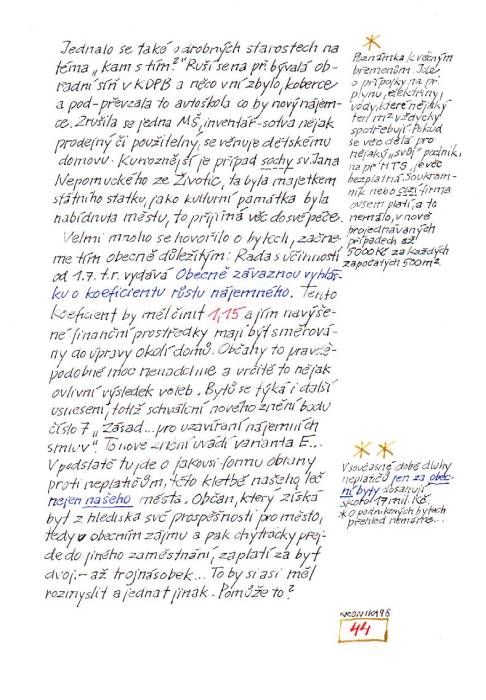 Jednalo se také o drobných starostech na
téma „kam s tím?" Ruší se na př. bývalá ob-
řadní síň v KDPB a něco v ní zbylo, koberce
a pod - převzala to autoškola co by nový nájem-
ce. Zrušila se jedna MŠ, inventář - sotva nějak
prodejný či použitelný, se věnuje dětskému
domovu. Kurioznější je případ sochy sv. Jana
Nepomuckého ze Životic, ta byla majetkem
státního statku, jako kulturní památka byla
nabídnuta městu, to přijímá věc do své péče.
Velmi mnoho se hovořilo o bytech, začně-
me tím obecně důležitým: Rada s účinností
od 1.7. t.r. vydává Obecně závaznou vyhláš-
ku o koeficientu růstu nájemného. Tento
koeficient by měl činit 1,15 a jím navýše-
né finanční prostředky mají být směrová-
ny do úpravy okolí domů. Občany to pravdě-
podobně moc nenadchne a určitě to nějak
ovlivní výsledek voleb. Bytů se týká i další
usnesení, totiž schválení nového znění bodu
číslo 7 „Zásad... pro uzavírání nájemních
smluv". To nové znění uvádí varianta E...
V podstatě tu jde o jakousi formu obrany
proti neplatičům, této kletbě našeho, leč
nejen našeho města. Občan, který získá
byt z hlediska své prospěšnosti pro město,
tedy v obecním zájmu a pak chytrácky přej-
de do jiného zaměstnání, zaplatí za byt
dvoj - až trojnásobek... To by si asi měl
rozmyslit a jednat jinak. Pomůže to?
Poznámka k věcným
břemenům. Jde
o přípojky na př.
plynu, elektřiny,
vody, které nějaký
ten m² vždycky
spotřebují. Pokud
se věc dělá pro
nějaký „svůj" podnik,
na př. HTS, je věc
bezplatná. Soukrom-
ník nebo cizí firma
ovšem platí, a to
nemálo, v nově
projednávaných
případech až
5000 Kč za každých
započatých 500 m²
V současné době dluhy
neplatičů jen za obec-
ní byty dosahují
skoro 17 mil. Kč.
O podnikových bytech
přehled nemáme...
KRONIKA 98
44